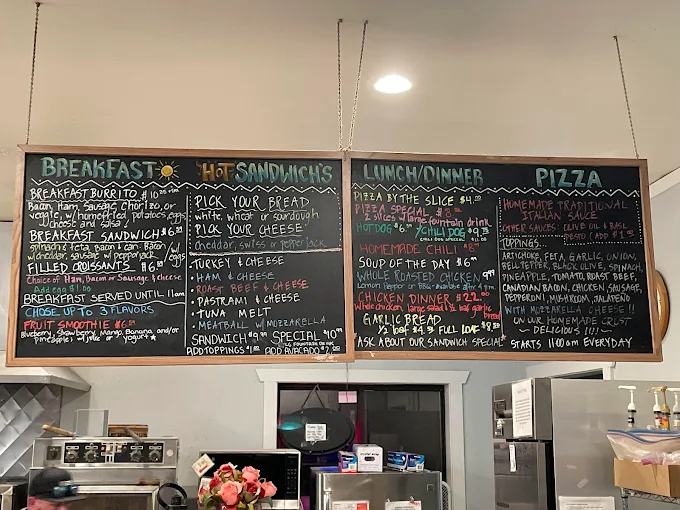 BREAKFAST
BREAKFAST BURRITO $10
Bacon, Ham, Sausage, Chorizo, or
veggie, w/ homefried potatoes, eggs,
cheese and salsa
BREAKFAST SANDWICH $6
spinach & feta, bacon & can. Bacon
w/ cheddar, sausage w/ pepperjack w/ eggs
FILLED CROISSANTS $6
Choice of Ham, Bacon or Sausage & cheese
Add egg $1.00
BREAKFAST SERVED UNTIL 11am
CHOSE UP TO 3 FLAVORS
FRUIT SMOOTHIE $6.50
Blueberry, Strawberry, Mango, Banana, and/or
pineapple, w/ milk or yogurt
HOT SANDWICH'S
PICK YOUR BREAD
white, wheat or sourdough
PICK YOUR CHEESE
cheddar, swiss or pepperjack
• TURKEY & CHEESE
• HAM & CHEESE
• ROAST BEEF & CHEESE
• PASTRAMI & CHEESE
• TUNA MELT
• MEATBALL w/ MOZZARELLA
SANDWICH $9.99 SPECIAL $10.99
FOUNTAIN DRINK
ADD TOPPINGS $1.00 ADD AVOCADO $2.00
LUNCH/DINNER
PIZZA BY THE SLICE $4.00
PIZZA SPECIAL $8
2 slices w/ large fountain drink
HOT DOG $6 CHILI DOG $9.75
CHILI DOG SPECIAL $11.00
HOMEMADE CHILI $8
SOUP OF THE DAY $6
WHOLE ROASTED CHICKEN 9.99
Lemon Pepper or BBQ - available after 4pm
CHICKEN DINNER $22.00
Whole chicken, large salad & 1/2 loaf garlic bread
GARLIC BREAD
1/2 loaf $4.75 FULL LOAF $8.50
*ASK ABOUT OUR SANDWICH SPECIAL*
PIZZA
HOMEMADE TRADITIONAL
ITALIAN SAUCE
OTHER SAUCES: OLIVE OIL & BASIL
PESTO (ADD $1.75)
TOPPINGS...
ARTICHOKE, FETA, GARLIC, ONION,
BELL PEPPER, BLACK OLIVE, SPINACH,
PINEAPPLE, TOMATO, ROAST BEEF,
CANADIAN BACON, CHICKEN, SAUSAGE,
PEPPERONI, MUSHROOM, JALAPEÑO
WITH MOZZARELLA CHEESE!!
ON OUR HOMEMADE CRUST
~ DELICIOUS!!! ~
STARTS 11:00am EVERYDAY